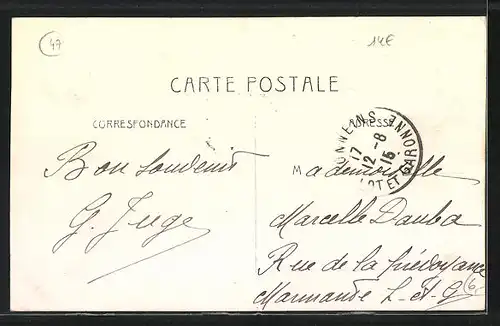 47
14€
CARTE POSTALE
CORRESPONDANCE
ADRESSE
TONNEINS
17
12-8
15
LOT ET GARONNE
Bon Souvenir
G. Juge
Mademoiselle
Marcelle Dauba
Rue de la Prévoyance
Marmande L-et-G